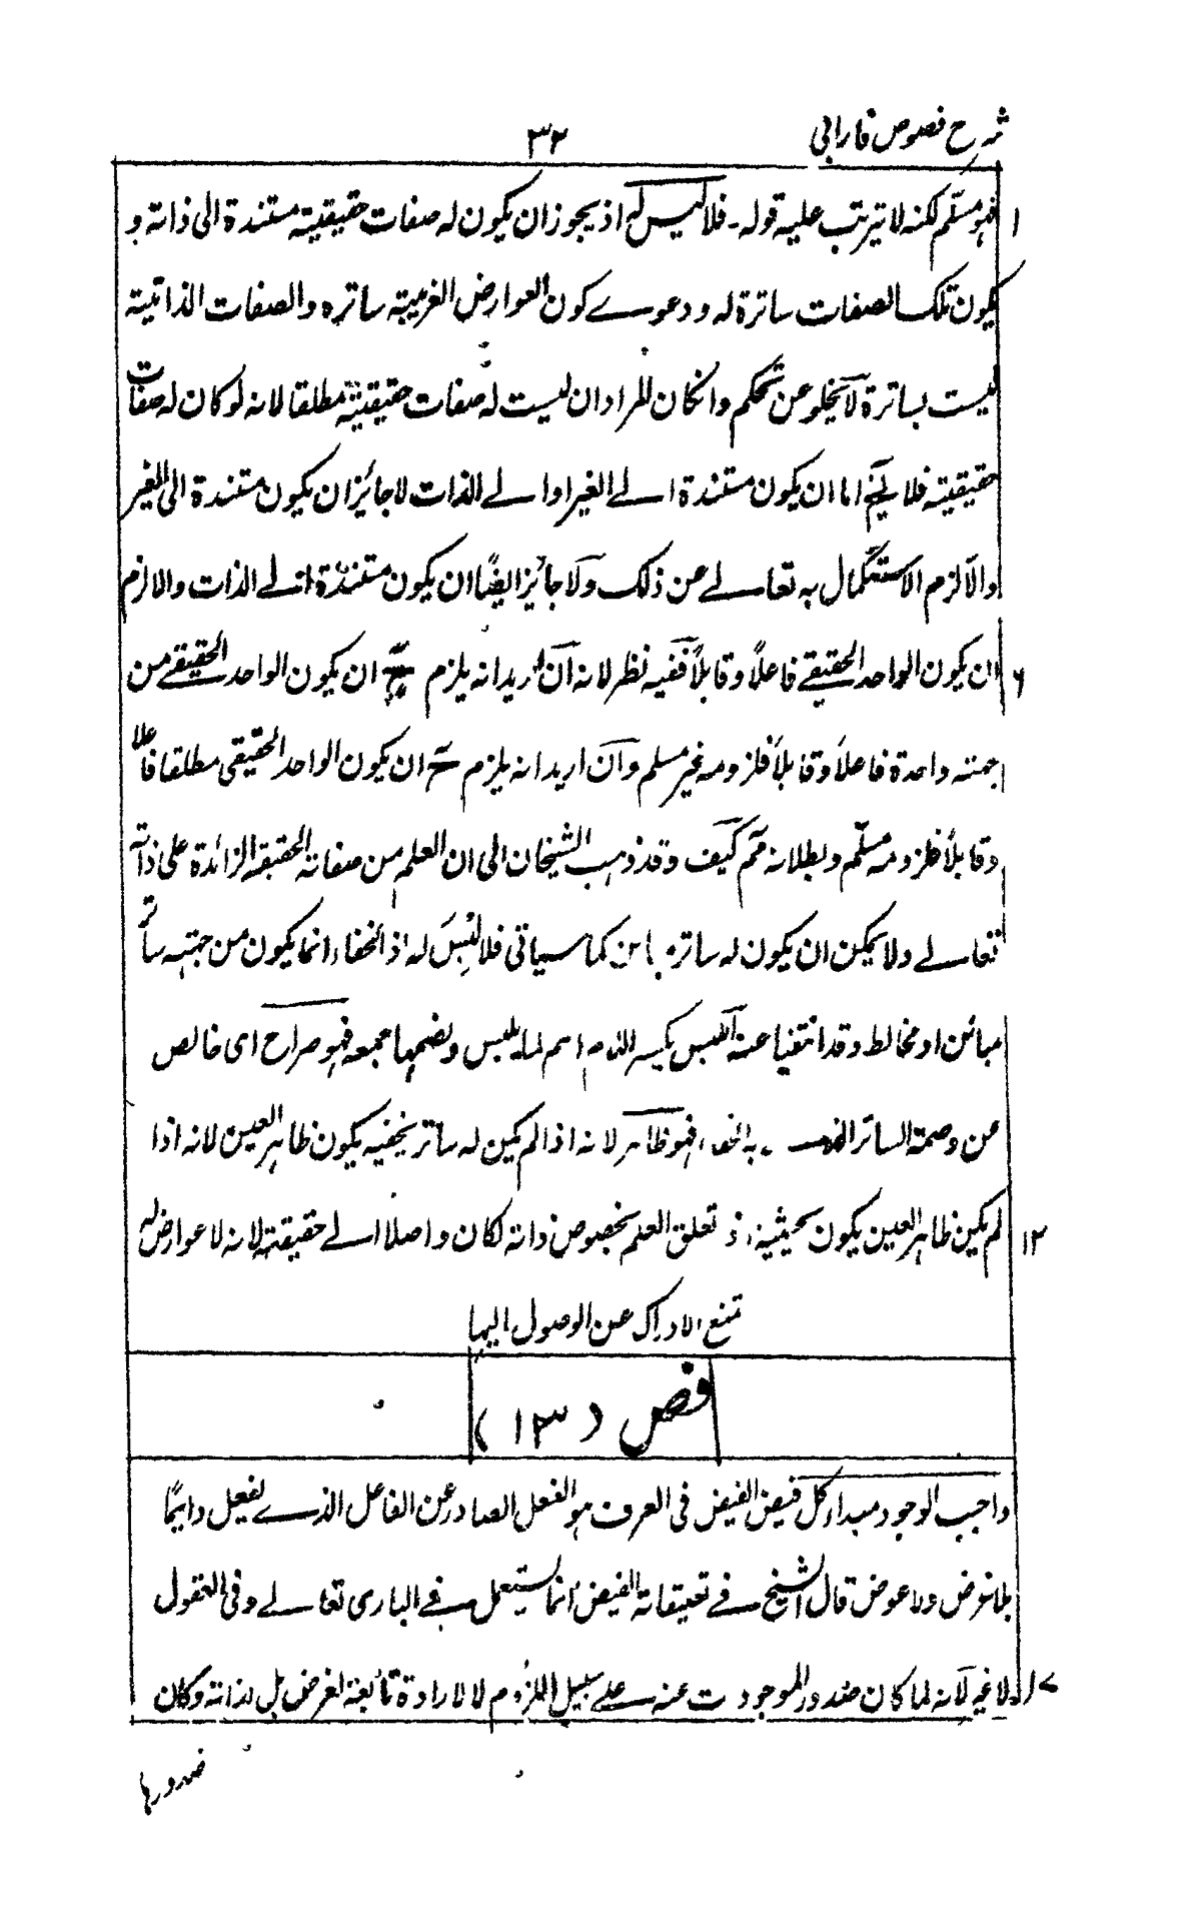 شرح فصوص فارابی
۳۲
۱ فهو مسلم لكنه لا يترتب عليه قوله۔ فلا لبس له اذ يجوز ان يكون له صفات حقيقية مستندة الى ذاته و
يكون تلك الصفات ساترة له و دعوے كون العوارض الغريبة ساتره والصفات الذاتية
ليست بساترة لا يخلو عن تحكم وان كان المراد ان ليست له صفات حقيقية مطلقا لانه لو كان له صفات
حقيقية فلا يخ اما ان يكون مستندة الے الغير او الے الذات لا جائز ان يكون مستندة الى الغير
والا لزم الاستكمال به تعالے عن ذلك ولا جائز ايضًا ان يكون مستندة الے الذات والا لزم
۶ ان يكون الواحد الحقيقے فاعلًا وقابلًا ففيه نظر لانه ان اريد انه يلزم ح ان يكون الواحد الحقيقے من
جهته واحدة فاعلا وقابلا فلزومه غير مسلم وان اريد انه يلزم ح ان يكون الواحد الحقيقى مطلقا فاعلا
وقابلًا فلزومه مسلّم وبطلانه مم كيف وقد ذهب الشيخان الى ان العلم من صفاته الحقيقه الزائدة على ذاته
تعالے ولا يمكن ان يكون له ساتر مباين كما سياتى فلا لبس له اذ الخفاء انما يكون من جهته ساتر
مبائن او مخالط وقد انتفيا عنه اللبس بكسر اللام اسم لما يلبس وبضمها جمعه فهو صراح اى خالص
عن وصمة الساتر به الخفاء فهو ظاهر لانه اذا لم يكن له ساتر يخفيه يكون ظاهر العين لانه اذا
۱۲ لم يكن ظاهر العين يكون بحيثية اذ تعلق العلم بخصوص ذاته لكان واصلا الے حقيقته لانه لا عوارض له
تمنع الادراك عن الوصول اليها
فص (۱۳)
واجب الوجود مبداء كل فيض الفيض فى العرف هو الفعل الصادر عن الفاعل الذے يفعل دايمًا
بلا غرض ولا عوض قال الشيخ فے تعيقاته الفيض انما يستعمل فے البارى تعالے وفى العقول
۱۷ لا غير لانه لما كان صدور الموجودات عنه علے سبيل اللزوم لا لارادة تابعة لغرض بل لذاته وكان
صدورها